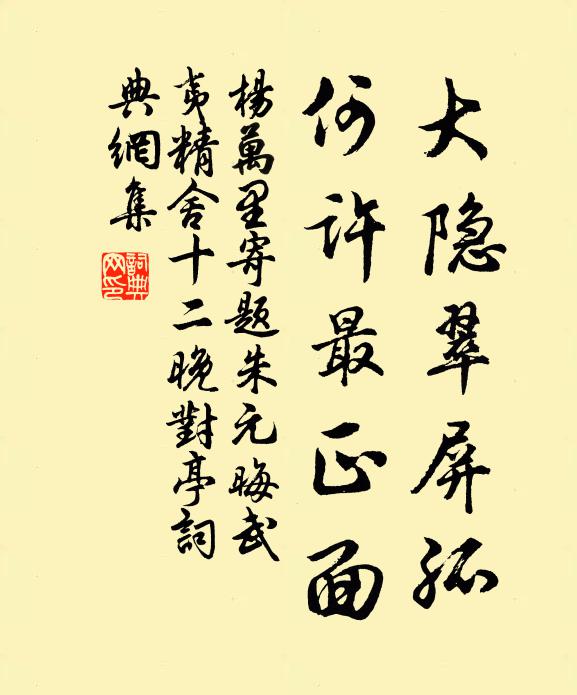 大隐翠屏孤
何许最正面
楊萬里寄題朱元晦武
夷精舍十二晚對亭詞
典網集
詞典网印